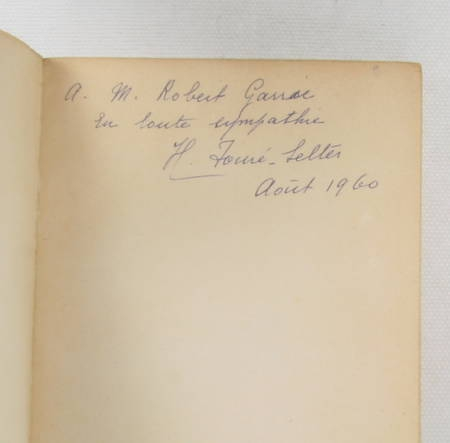 A. M. Robert Garric
En toute sympathie
H. Fouré-Selter
Août 1960